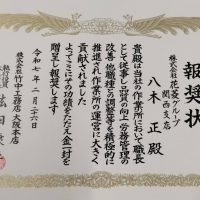 報奨状
株式会社花菱グループ
関西支店
八木 正 殿
貴殿は当社の作業所において職長
として従事し品質の向上労務管理の
改善他職種との調整等を積極的に
推進され作業所の運営に大きく
貢献されました
よってここにその功績をたたえ金一封を
贈呈し報奨します
令和七年二月二十六日
株式会社竹中工務店大阪本店